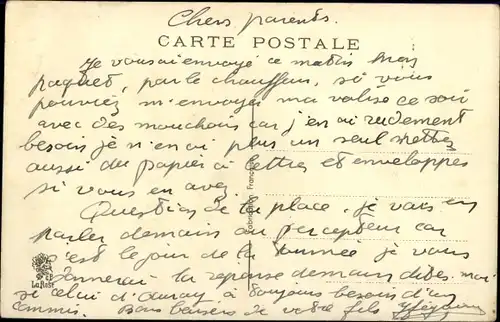 Chers parents.
CARTE POSTALE
Je vous ai envoyé ce matin mon
paquet, par le chauffeur, si vous
pouviez m'envoyer ma valise ce soir
avec des mouchoirs car j'en ai rudement
besoin je n'en ai plus un seul mettez
aussi du papier à lettres et enveloppes
si vous en avez.
Question de la place, je vais en
parler demain au percepteur car
c'est le jour de la tournée je vous
donnerai la réponse demain dites-moi
si celui d'Auray a toujours besoin d'un
commis. Bons baisers de votre fils
La Rose